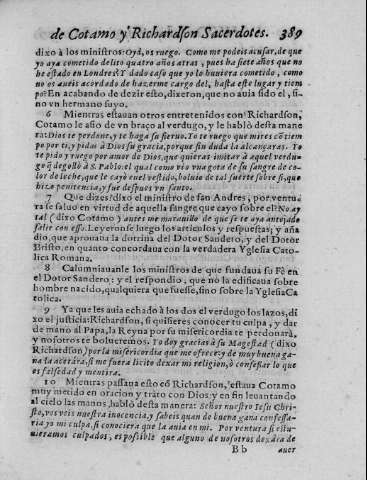 de Cotamo y Richardson Sacerdotes. 389
dixo à los ministros: Oyd, os ruego. Como me podeis acusar, de que
yo aya cometido delito quatro años atras, pues ha siete años que no
he estado en Londres? Y dado caso que yo lo huuiera cometido, como
no os aueis acordado de hazerme cargo del, hasta este lugar y tiem
po? En acabando de dezir esto, dixeron, que no auia sido el, si-
no vn hermano suyo.
6 Mientras estauan otros entretenidos con Richardson,
Cotamo le asio de vn braço al verdugo, y le hablò desta mane
ra: Dios te perdone, y te haga su sieruo. Yo te ruego que mires cõ tiem
po por ti, y pidas à Dios su gracia, porque sin duda la alcançaras. Yo
te pido y ruego por amor de Dios, que quieras imitar à aquel verdu-
go q̃ degollò à S. Pablo: el qual como vio vna gota de su sangre de co-
lor de leche, que le cayò en el vestido, boluio de tal suerte sobre si, que
hizo penitencia, y fue despues vn santo.
7 Que dizes? dixo el ministro de san Andres, por ventu-
ra se saluo en virtud de aquella sangre que cayo sobre el? No ay
tal (dixo Cotamo) antes me marauillo de que se te aya antojado
salir con esso. Leyeron se luego los articulos y respuestas; y aña
dio, que aprouaua la dotrina del Dotor Sandero, y del Dotor
Bristo, en quanto concordaua con la verdadera Yglesia Cato-
lica Romana.
8 Calumniauanle los ministros de que fundaua su Fè en
el Dotor Sandero: y el respondio, que no la edificaua sobre
hombre nacido, qualquiera que fuesse, sino sobre la Yglesia Ca
tolica.
9 Ya que les auia echado à los dos el verdugo los lazos, di-
xo el justicia: Richardson, si quisieres conocer tu culpa, y dar
de mano al Papa, la Reyna por su misericordia te perdonarà,
y nosotros te bolueremos. Yo doy gracias à su Magestad (dixo
Richardson) por la misericordia que me ofrece: y de muy buena ga-
na la acetára, si me fuera licito dexar mi religion, ò confessar lo que
es falsedad y mentira.
10 Mientras passaua esto cõ Richardson, estaua Cotamo
muy metido en oracion y trato con Dios, y en fin leuantando
al cielo las manos, hablò desta manera: Señor nuestro Iesu Chri-
sto, vos veis nuestra inocencia, y sabeis quan de buena gana confessa-
ria yo mi culpa, si conociera que la auia en mi. Por ventura si estu-
uieramos culpados, es possible que alguno de nosotros dexàra de
Bb auer